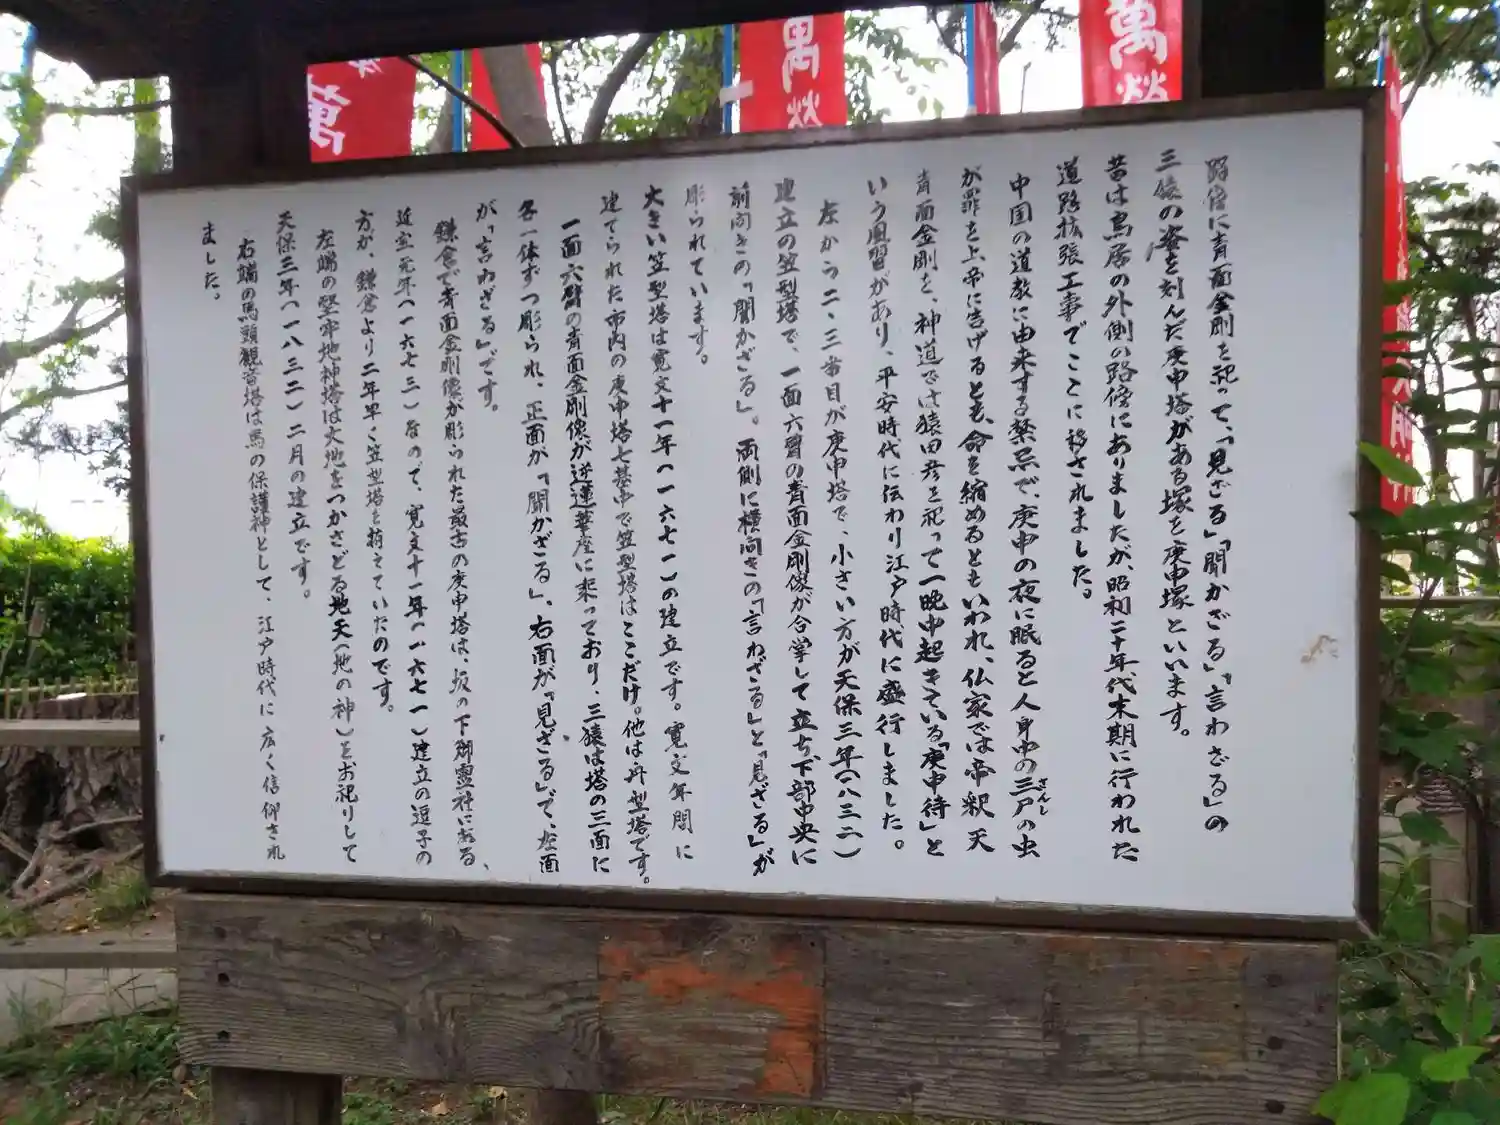 路傍に青面金剛を祀って、「見ざる」「聞かざる」「言わざる」の
三猿の姿を刻んだ庚申塔がある塚を庚申塚といいます。
昔は鳥居の外側の路傍にありましたが、昭和二十年代末期に行われた
道路拡張工事でここに移されました。
中国の道教に由来する禁忌で、庚申の夜に眠ると人身中の三尸の虫
さんし
が罪を上帝に告げるとも、命を縮めるともいわれ、仏家では帝釈天
青面金剛を、神道では猿田彦を祀って一晩中起きている「庚申待」と
いう風習があり、平安時代に伝わり江戸時代に盛行しました。
左から二、三番目が庚申塔で、小さい方が天保三年(一八三二)
建立の笠型塔で、一面六臂の青面金剛像が合掌して立ち、下部中央に
前向きの「聞かざる」。両側に横向きの「言わざる」と「見ざる」が
彫られています。
大きい笠型塔は寛文十一年(一六七一)の建立です。寛文年間に
建てられた市内の庚申塔七基中で笠型塔はここだけ。他は舟型塔です。
一面六臂の青面金剛像が逆蓮華座に乗っており、三猿は塔の三面に
各一体ずつ彫られ、正面が「聞かざる」、右面が「見ざる」で、左面
が「言わざる」です。
鎌倉で青面金剛像が彫られた最古の庚申塔は、坂の下御霊社にある、
延宝元年(一六七三)なので、寛文十一年(一六七一)建立の逗子の
方が、鎌倉より二年早く笠型塔を持てていたのです。
左端の堅牢地神塔は大地をつかさどる地天(地の神)をお祀りして
天保三年(一八三二)二月の建立です。
右端の馬頭観音塔は馬の保護神として、江戸時代に広く信仰され
ました。
萬
萬
萬